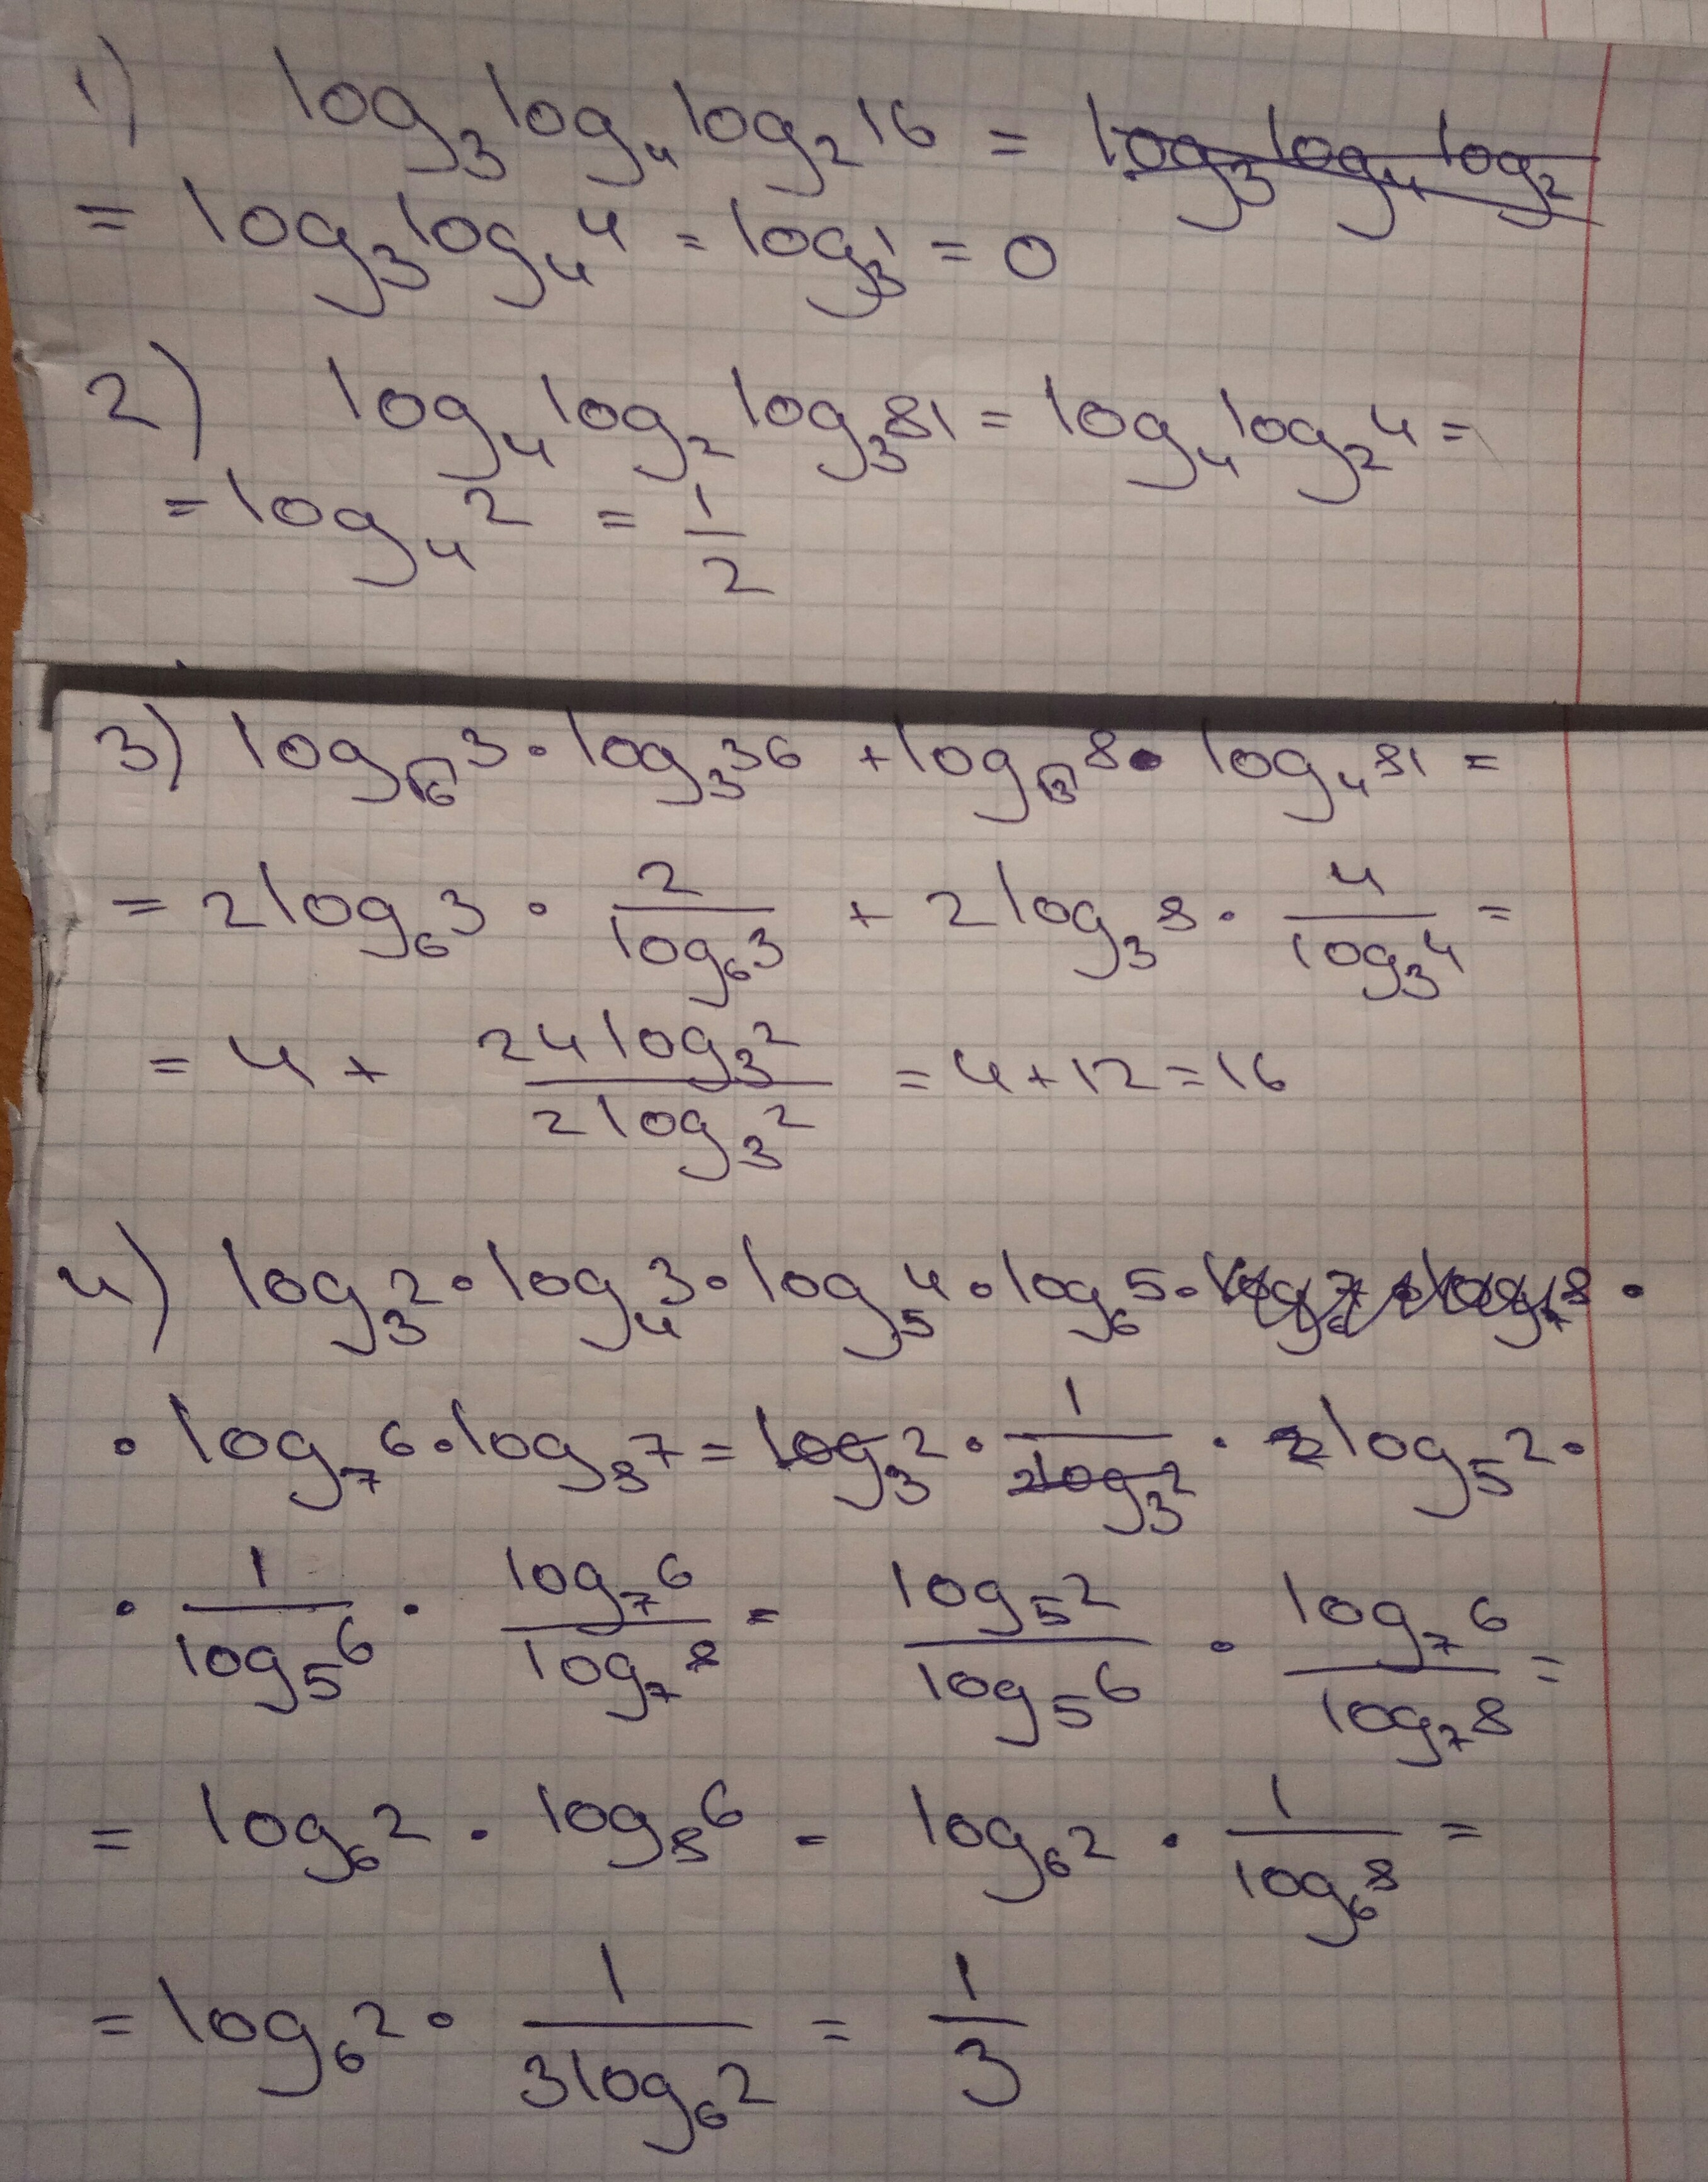 1) log₃ log₄ log₂ 16 = log₃ log₄ log₂
= log₃ log₄ 4 = log₃ 1 = 0
2) log₄ log₂ log₃ 81 = log₄ log₂ 4 =
= log₄ 2 = 1/2
3) log_√6 3 · log₃ 36 + log_√3 8 · log₄ 81 =
= 2 log₆ 3 · 2/(log₆ 3) + 2 log₃ 8 · 4/(log₃ 4) =
= 4 + (24 log₃ 2)/(2 log₃ 2) = 4 + 12 = 16
4) log₃ 2 · log₄ 3 · log₅ 4 · log₆ 5 · log₆ 7 · log₇ 8 ·
· log₇ 6 · log₈ 7 = log₃ 2 · 1/(2 log₃ 2) · 2 log₅ 2 ·
· 1/(log₅ 6) · (log₇ 6)/(log₇ 8) = (log₅ 2)/(log₅ 6) · (log₇ 6)/(log₇ 8) =
= log₆ 2 · log₈ 6 = log₆ 2 · 1/(log₆ 8) =
= log₆ 2 · 1/(3 log₆ 2) = 1/3